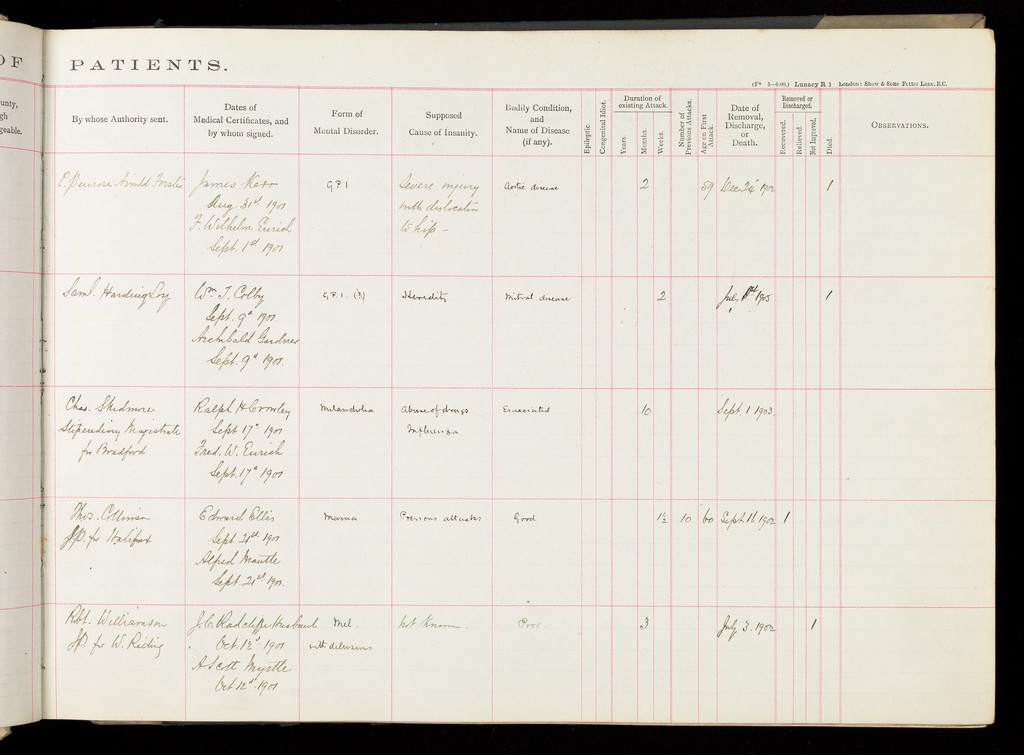 OF
PATIENTS.
(Pa 5-6.00.) Lunacy R 1 London: Shaw & Sons Fetter Lane, E.C.
unty,
gh
geable.
By whose Authority sent.
Dates of
Medical Certificates, and
by whom signed.
Form of
Mental Disorder.
Supposed
Cause of Insanity.
Bodily Condition,
and
Name of Disease
(if any).
Epileptic.
Congenital Idiot.
Duration of
existing Attack.
Years.
Months.
Weeks.
Number of
Previous Attacks.
Age on First
Attack.
Date of
Removal,
Discharge,
or
Death.
Removed or
Discharged.
Recovered.
Relieved.
Not Improved.
Died.
Observations.
Penrose Arnold Forster
James Kerr
Aug 31st 1901
F. Wilhelm Eurich
Sept. 1st 1901
G.P.I
Severe injury
with dislocation
to hip -
Aortic disease
2
59
Dec 24th 1902
1
Saml. Harding
Wm T. Colby
Sept. 9th 1901
Archibald Gardner
Sept. 9th 1901.
G.P.I. (?)
Heredity
Mitral disease
2
July 1st 1905
1
Chas. Skidmore
Stipendiary Magistrate
for Bradford
Ralph H Crowley
Sept 17th 1901
Fred. W. Eurich
Sept. 17th 1901
Melancholia
Abuse of drugs
Influenza
Emaciated
10
Sept. 1 1903
Thos. Collinson
J.P. for Halifax
Edward Ellis
Sept 21st 1901
Alfred Mantle
Sept. 21st 1901.
Mania
Previous attacks
Good
1½
10
60
Sept. 16 1902
1
Robt. Williamson
J.P. for W. Riding
J.C. Radcliffe Husband
Oct. 12th 1901
A Scott Mystle
Oct 12th 1901
Mel.
with delusions
Not known.
Poor
3
July 3. 1902
1